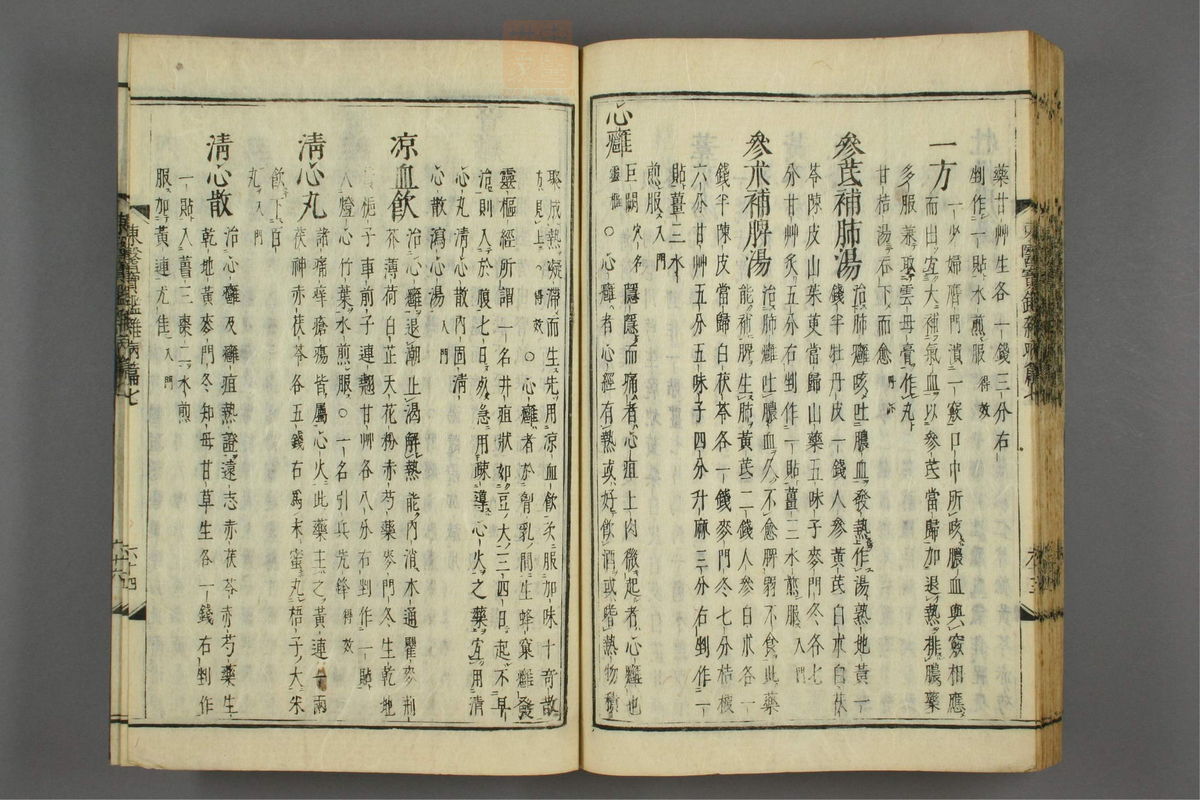 藥甘艸生各一錢三分右
剉作一貼水煎服得效
一方一少婦膺門潰一竅口中所咳膿血與竅相應
而出宜大補氣血以參芪當歸加退熱排膿藥
多服兼取雲母膏作丸
甘桔湯呑下而愈
參芪補肺湯治肺癰咳吐膿血發熱作湯熟地黃一
錢半牡丹皮一錢人參黃芪白朮白茯
苓陳皮山茱萸當歸山藥五味子麥門冬各七
分甘艸炙五分右剉作一貼薑三水煎服入門
參朮補脾湯治肺癰吐膿血久不愈脾弱不食此藥
能補脾生肺黃芪二錢人參白朮各一
錢半陳皮當歸白茯苓各一錢麥門冬七分桔梗
六分甘艸五分五味子四分升麻三分右剉作一
貼薑三水
煎服入門
心癰巨闕穴名隱隱而痛者心疽上肉微起者心癰也
靈樞○心癰者心經有熱或好飲酒或嗜熱物積
聚成熱凝滯而生先用凉血飲次服加味十奇散
方見上得效○心癰者於骨乳間生蜂窠癰發
靈樞經所謂一名井疽狀如豆大三四日起不早
治則入於腹七日死急用疎導心火之藥宜用淸
心丸淸心散內固淸
心散瀉心湯入門
凉血飲治心癰退潮止渴解熱能內消木通瞿麥荊
芥薄荷白芷天花粉赤芍藥麥門冬生乾地
黃梔子車前子連翹甘艸各八分右剉作一貼
入燈心竹葉水煎服○一名引兵先鋒得效
淸心丸諸痛痒瘡瘍皆屬心火此藥主之黃連一兩
茯神赤茯苓各五錢右爲末蜜丸梧子大米
飮下百
丸入門
淸心散治心癰及癰疽熱證遠志赤茯苓赤芍藥生
乾地黃麥門冬知母甘草生各一錢右剉作
一貼入薑三棗二水煎
服加黃連尤佳入門
東醫寶鑑雜病篇七
六十四